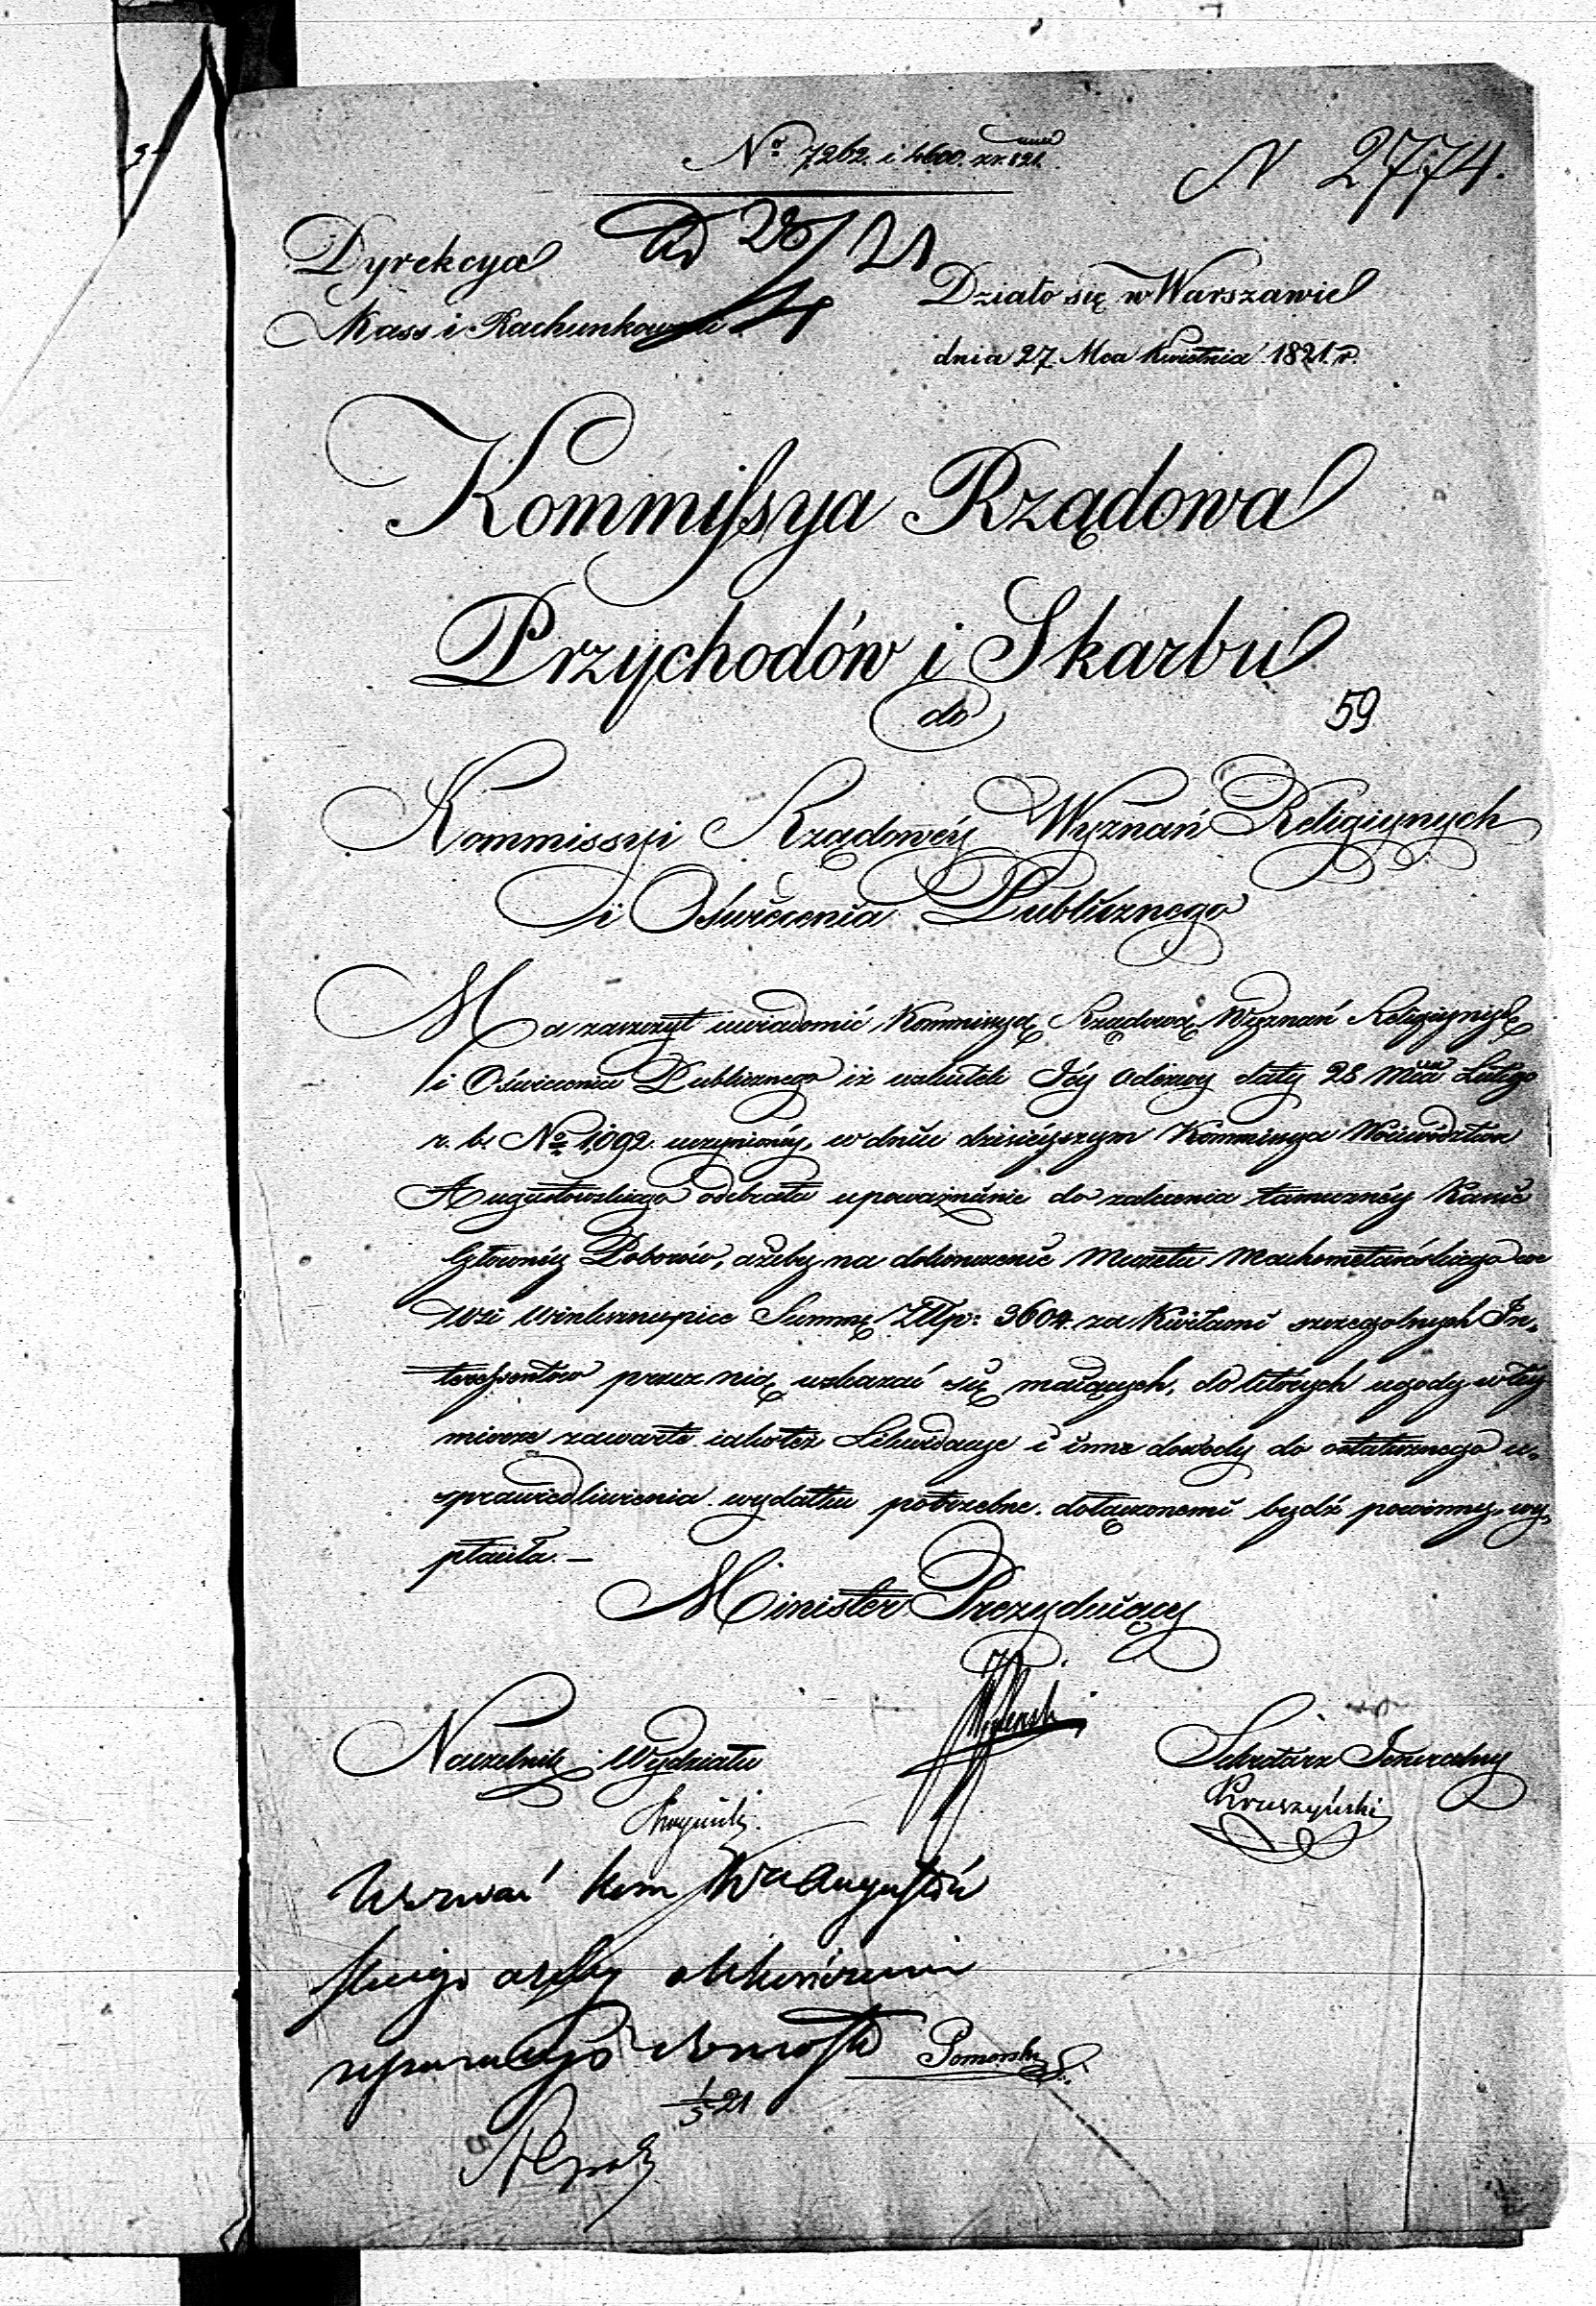 No 7262. i 4600. xr. 821.
N 2774.
Dyrekcya
ad 28/21
4
Kass i Rachunkowości
Działo się w Warszawie
dnia 27. Mca Kwietnia 1821. r.
Kommissya Rządowa
Przychodów i Skarbu
do
59
Kommissyi Rządowéy Wyznań Religiynych
i Oświecenia Publicznego
Ma zaszczyt uwiadomić Kommissyą Rządową Wyznań Religiynych
i Oświecenia Publicznego iż wskutek Jéy Odezwy daty 28 Mca Lutego
r. b. No 1,092. uczynionéy, w dniu dzisieyszym Kommissya Woiewództwa
Augustowskiego odebrała upoważnienie do zalecenia tamecznéy Kassie
Głównéy Poborów, ażeby na dokończenie Meczetu Machometańskiego we
Wsi Winksznupice Summę Złłp: 3604. za Kwitami szczególnych In-
teressentów przez nią wskazać się maiących, do których ugody w téy
mierze zawarte iakoteż Likwidacye i inne dowody do ostatecznego u-
sprawiedliwienia wydatku potrzebne dołączonemi bydź powinny, wy-
płaciła. —
Minister Prezyduiący
Naczelnik Wydziału
Sekretarz Jeneralny
Kruszyński
Wezwać Kom Wa Augustow
skiego ażeby o
Pomorski
1/5 21